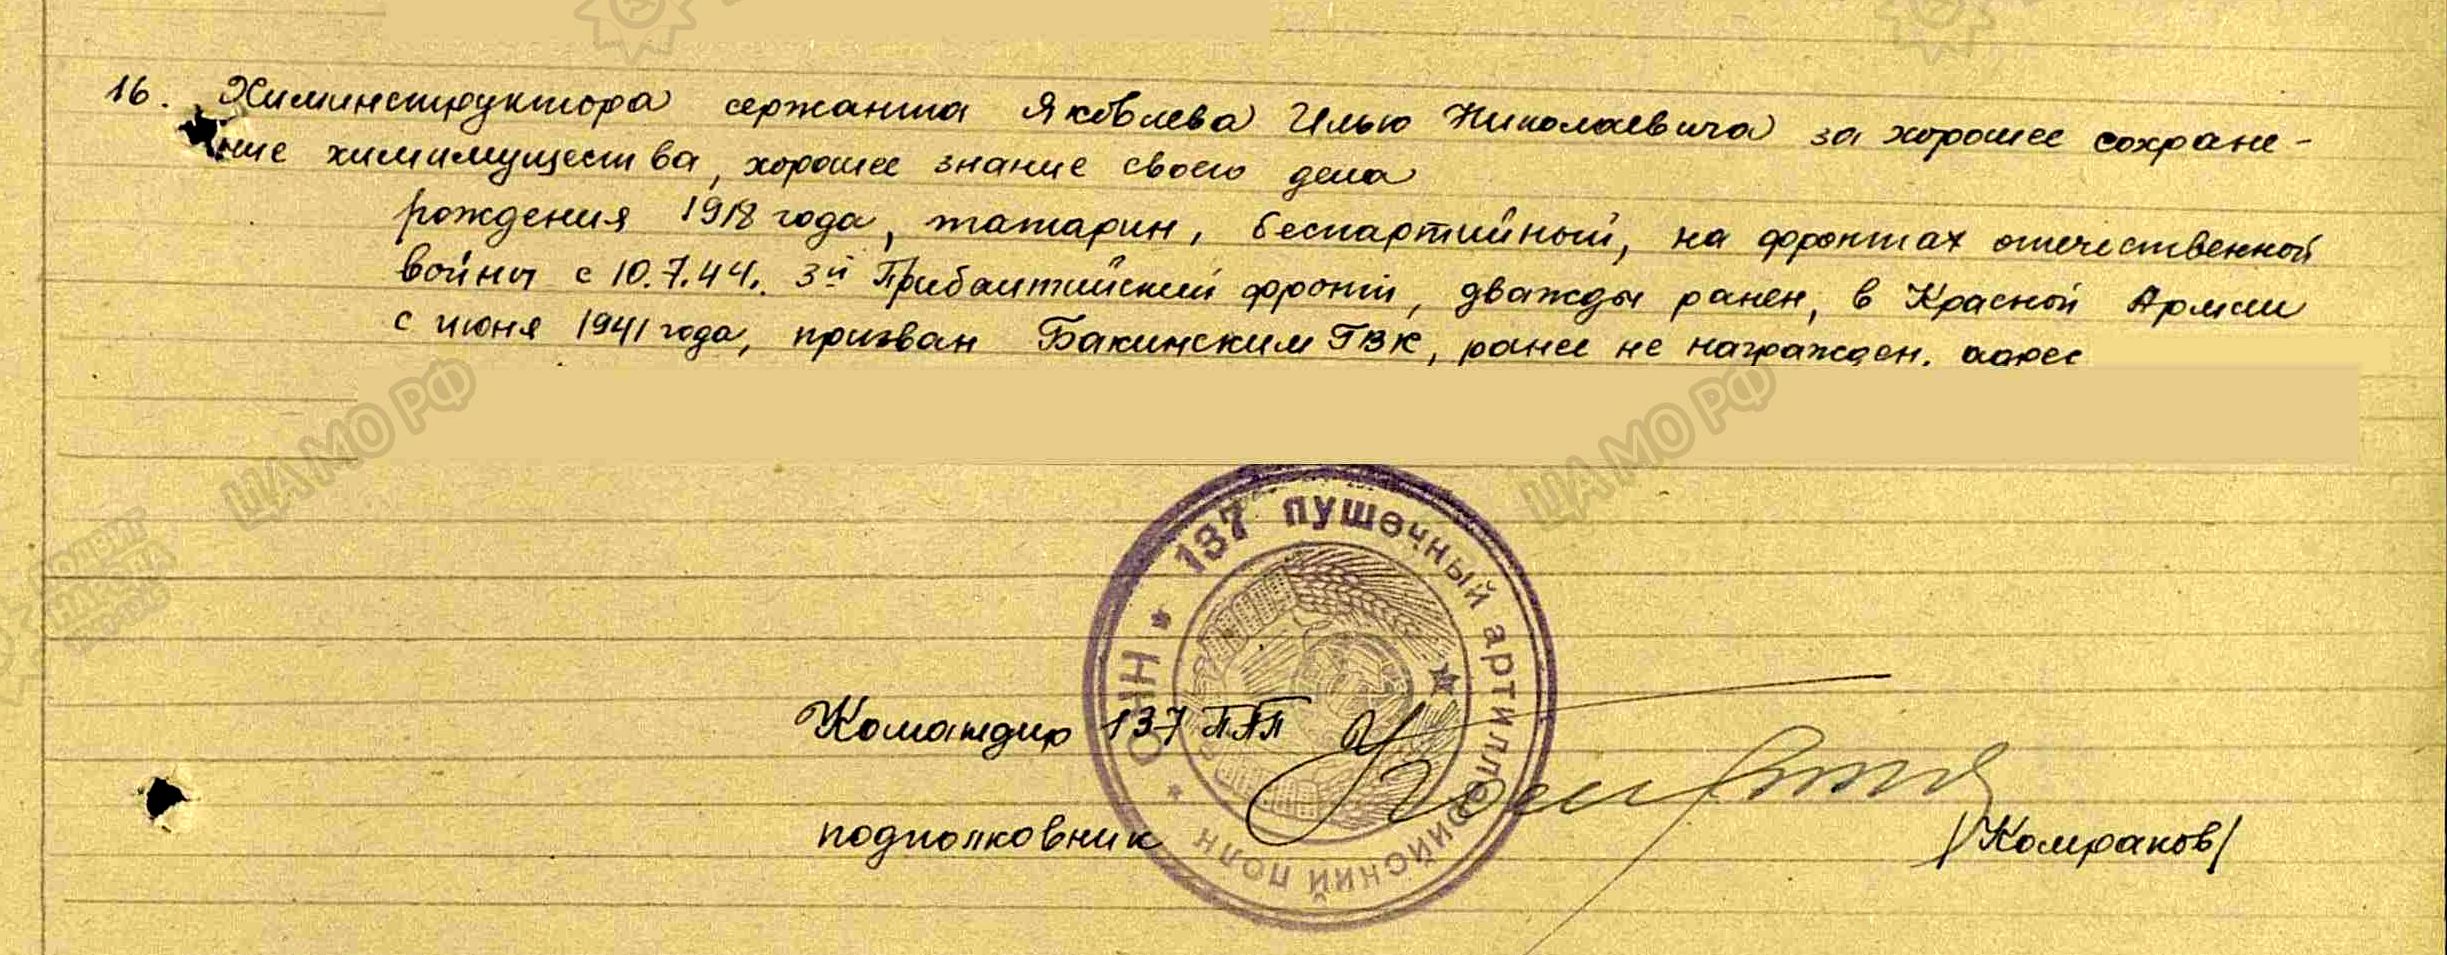 16. Химинструктора сержанта Яковлева Илью Николаевича за хорошее сохране-
ние химимущества, хорошее знание своего дела
рождения 1918 года, татарин, беспартийный, на фронтах отечественной
войны с 10.7.44. 3й Прибалтийский фронт, дважды ранен, в Красной Армии
с июня 1941 года, призван Бакинским ГВК, ранее не награжден. адрес
ЦАМО РФ
ЦАМО РФ
ПОДВИГ
НАРОДА
137 пушечный артиллерийский полк
Командир 137 ПАП
подполковник
/Компаков/